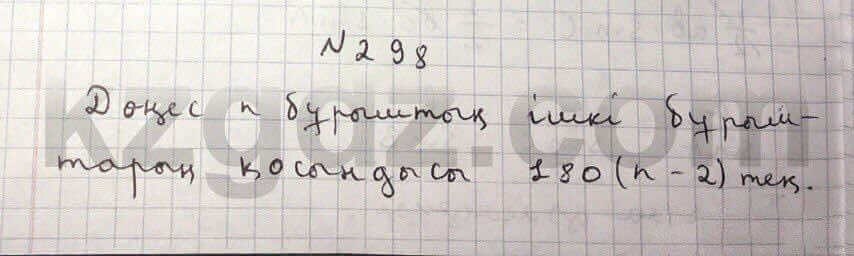 N 298
Дөңес n бұрыштың ішкі бұрыш-
тарың қосындысы 180(n-2) тең.
kzgdz.com